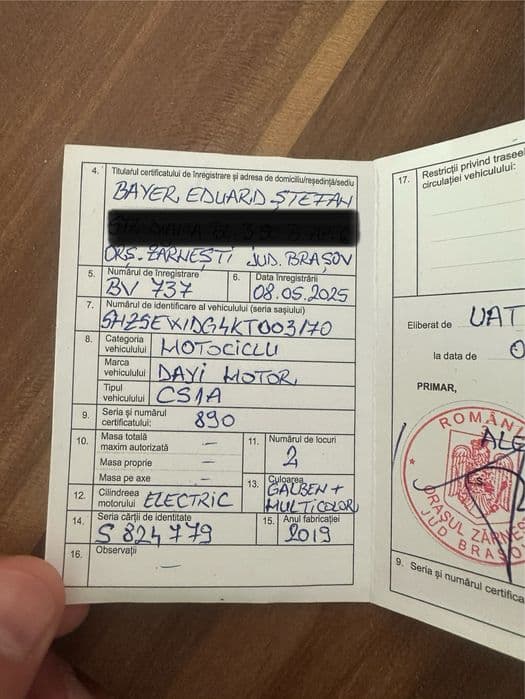 4. Titularul certificatului de înregistrare și adresa de domiciliu/reședință/sediu
BAYER EDUARD ȘTEFAN
ORȘ. ZĂRNEȘTI JUD. BRAȘOV
5. Numărul de înregistrare BV 737
6. Data înregistrării 08.05.2025
7. Numărul de identificare al vehiculului (seria șasiului)
8. Categoria vehiculului MOTOCICLU
Marca vehiculului DAYI MOTOR
Tipul vehiculului CS1A
9. Seria și numărul certificatului: 890
10. Masa totală maxim autorizată –
Masa proprie –
Masa pe axe –
11. Numărul de locuri 2
12. Cilindreea motorului ELECTRIC
13. Culoarea GALBEN + MULTICOLOR
14. Seria cărții de identitate S 824779
15. Anul fabricației 2019
16. Observații –
17. Restricții privind
circulației vehiculului:
Eliberat de UAT
la data de
PRIMAR,
ROMÂNI
ORAȘUL ZĂRNE
JUD BRAȘO
9. Seria și numărul